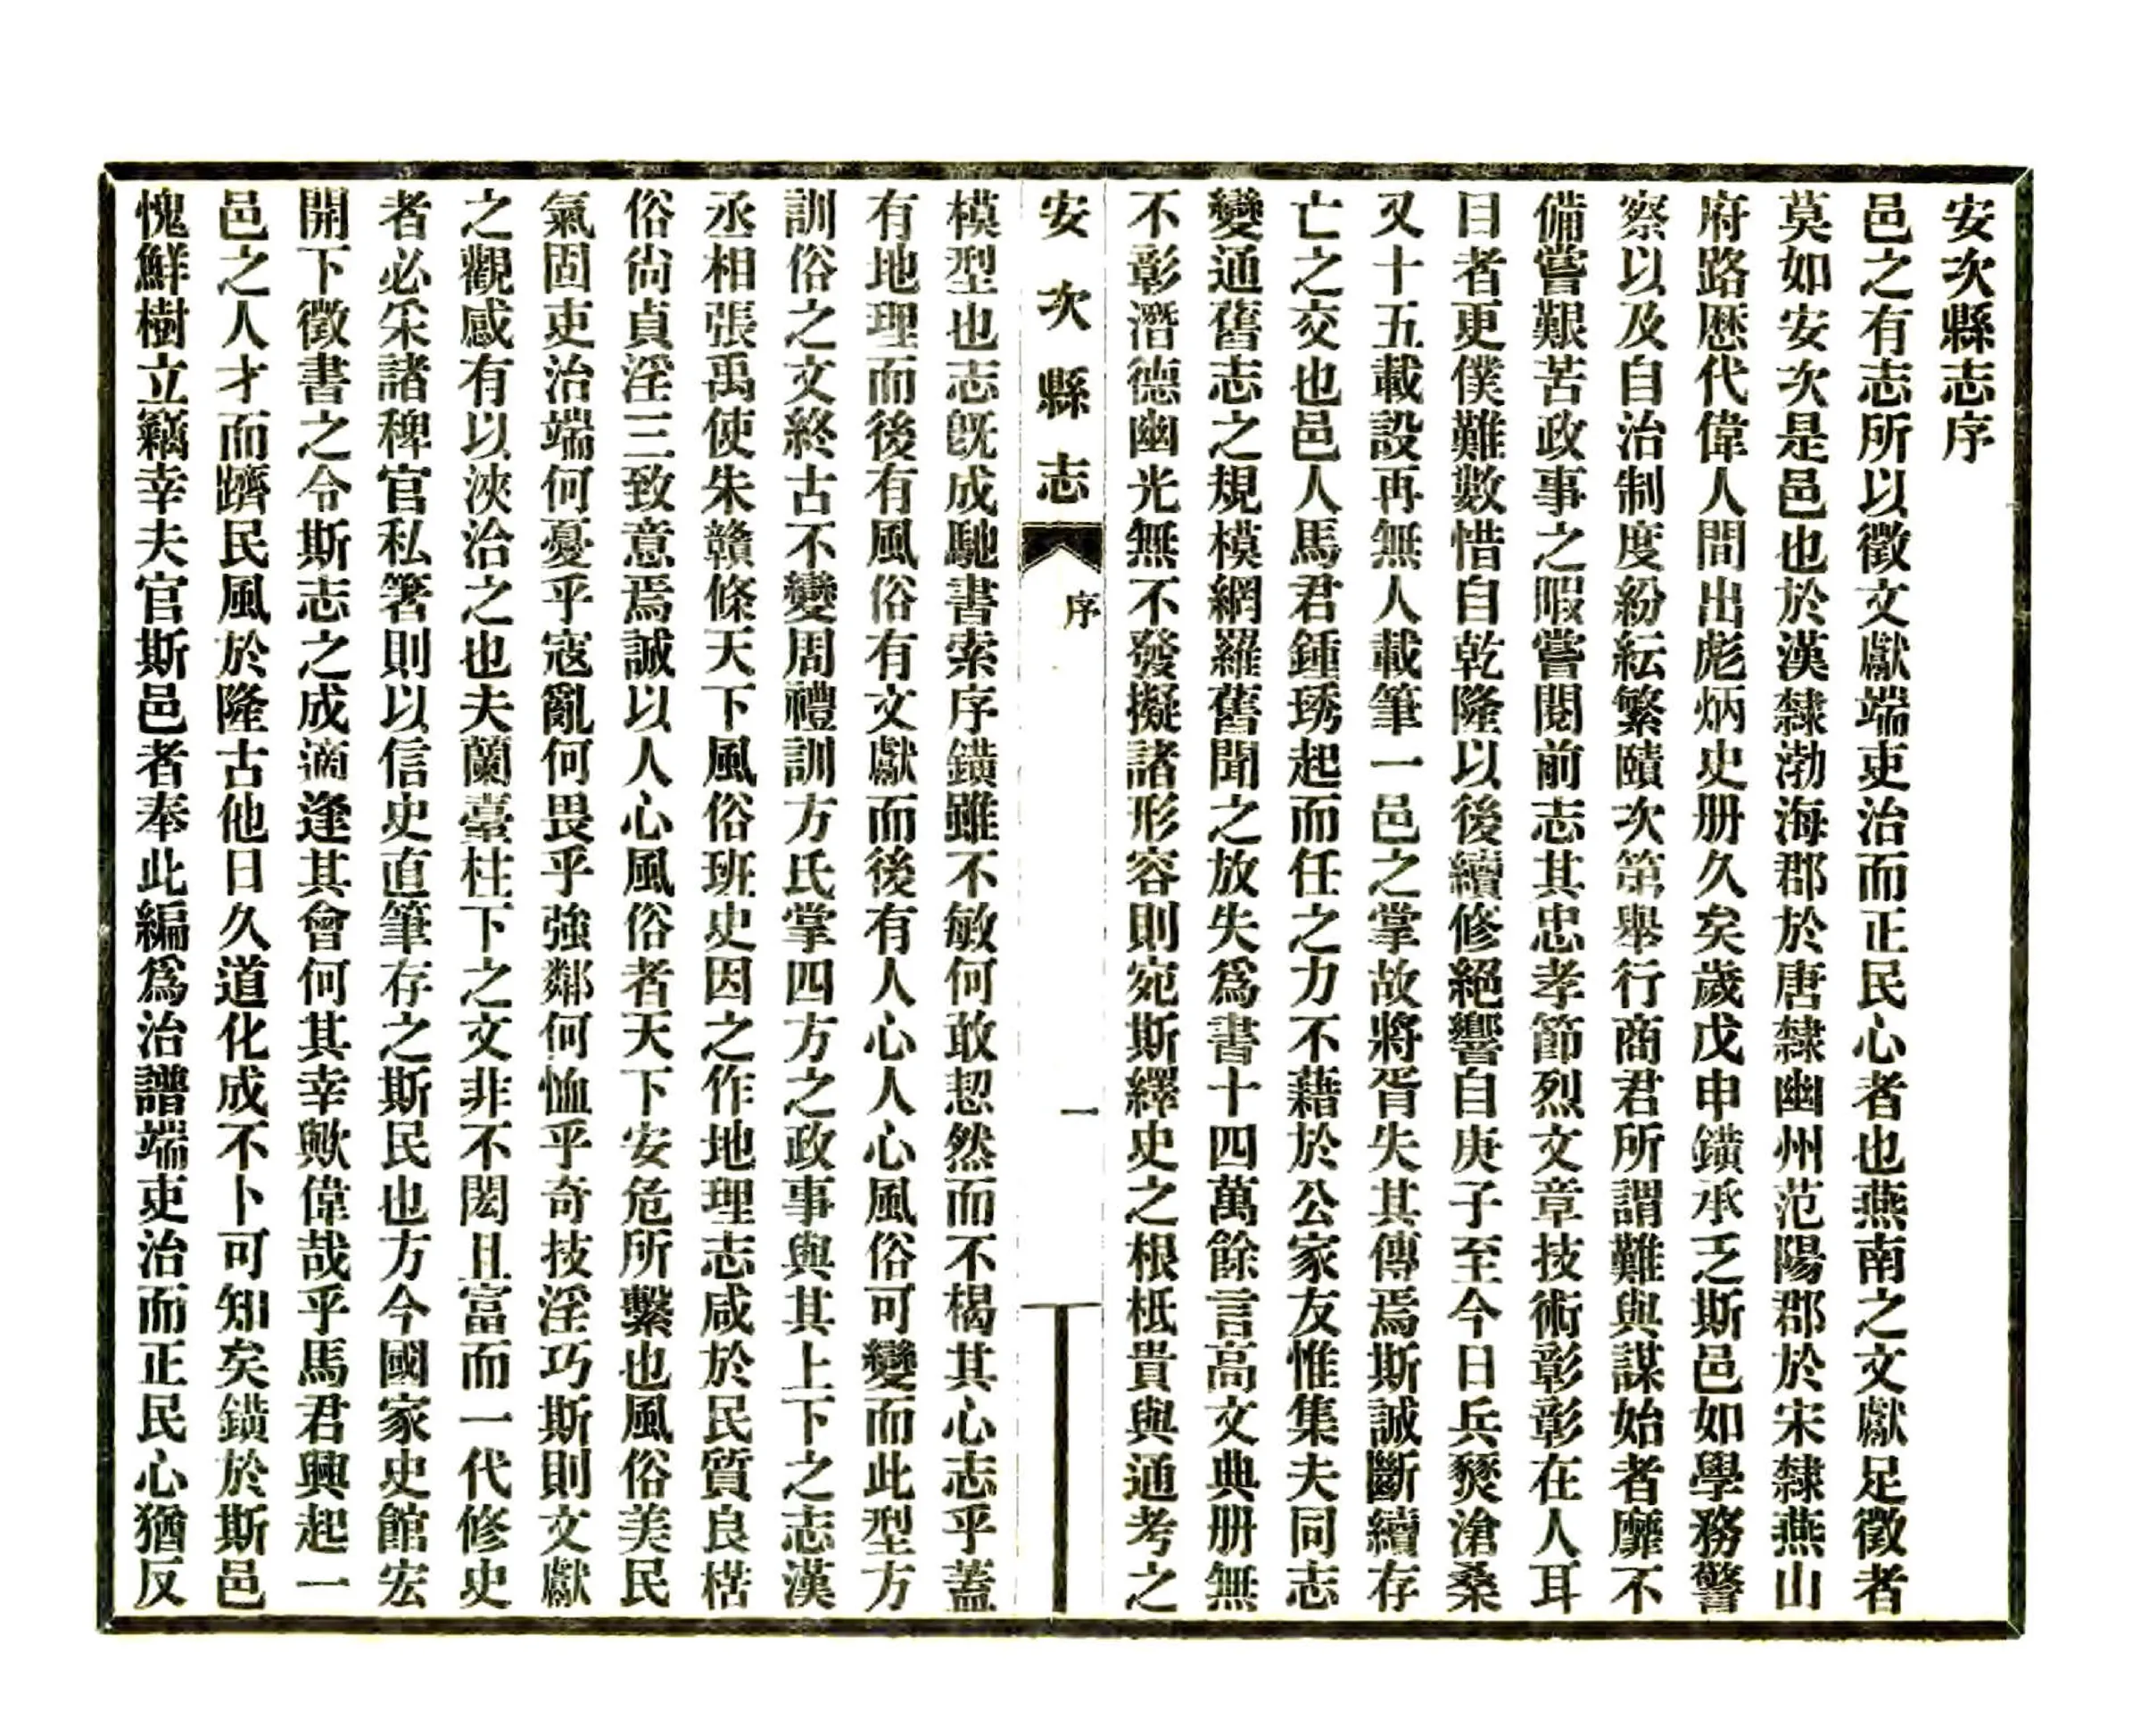 安次縣志序
邑之有志所以徵文獻端吏治而正民心者也燕南之文獻足徵者
莫如安次是邑也於漢隸渤海郡於唐隸幽州范陽郡於宋隸燕山
府路歷代偉人間出彪炳史册久矣歲戊申鐄承乏斯邑如學務警
察以及自治制度紛紜繁賾次第舉行商君所謂難與謀始者靡不
備嘗艱苦政事之暇嘗閱前志其忠孝節烈文章技術彰彰在人耳
目者更僕難數惜自乾隆以後續修絕響自庚子至今日兵燹滄桑
又十五載設再無人載筆一邑之掌故將胥失其傳焉斯誠斷續存
亡之交也邑人馬君鍾琇起而任之力不藉於公家友惟集夫同志
變通舊志之規模網羅舊聞之放失爲書十四萬餘言高文典册無
不彰潛德幽光無不發擬諸形容則宛斯繹史之根柢貴與通考之
安次縣志
序
一
模型也志既成馳書索序鐄雖不敏何敢恝然而不楬其心志乎蓋
有地理而後有風俗有文獻而後有人心人心風俗可變而此型方
訓俗之文終古不變周禮訓方氏掌四方之政事與其上下之志漢
丞相張禹使朱贛條天下風俗班史因之作地理志咸於民質良楛
俗尙貞淫三致意焉誠以人心風俗者天下安危所繫也風俗美民
氣固吏治端何憂乎寇亂何畏乎強鄰何恤乎奇技淫巧斯則文獻
之觀感有以浹洽之也夫蘭臺柱下之文非不閎且富而一代修史
者必采諸稗官私箸則以信史直筆存之斯民也方今國家史館宏
開下徵書之令斯志之成適逢其會何其幸歟偉哉乎馬君興起一
邑之人才而躋民風於隆古他日久道化成不卜可知矣鐄於斯邑
愧鮮樹立竊幸夫官斯邑者奉此編爲治譜端吏治而正民心猶反